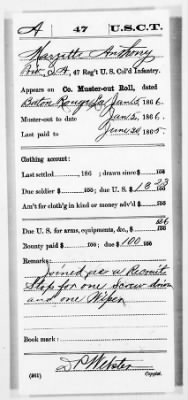 A 47 U.S.C.T.
Anthony
Co. A, 47 Reg't U. S. Col'd Infantry.
Appears on Co. Muster-out Roll, dated
Baton Rouge La Jan 5, 1866.
Muster-out to date Jan 5, 1866.
Last paid to June 30, 1865.
Clothing account:
Last settled 186 ; drawn since $ 100
Due soldier $ 100; due U. S. $ 18 23/100
Am't for cloth'g in kind or money adv'd $ 100
Due U. S. for arms, equipments, &c., $ 100
Bounty paid $ 100; due $ 100 100
Remarks:
Joined as a Recruit
Stop for one Screw driver
and one Wiper
Book mark:
Webster
(861) Copyist.